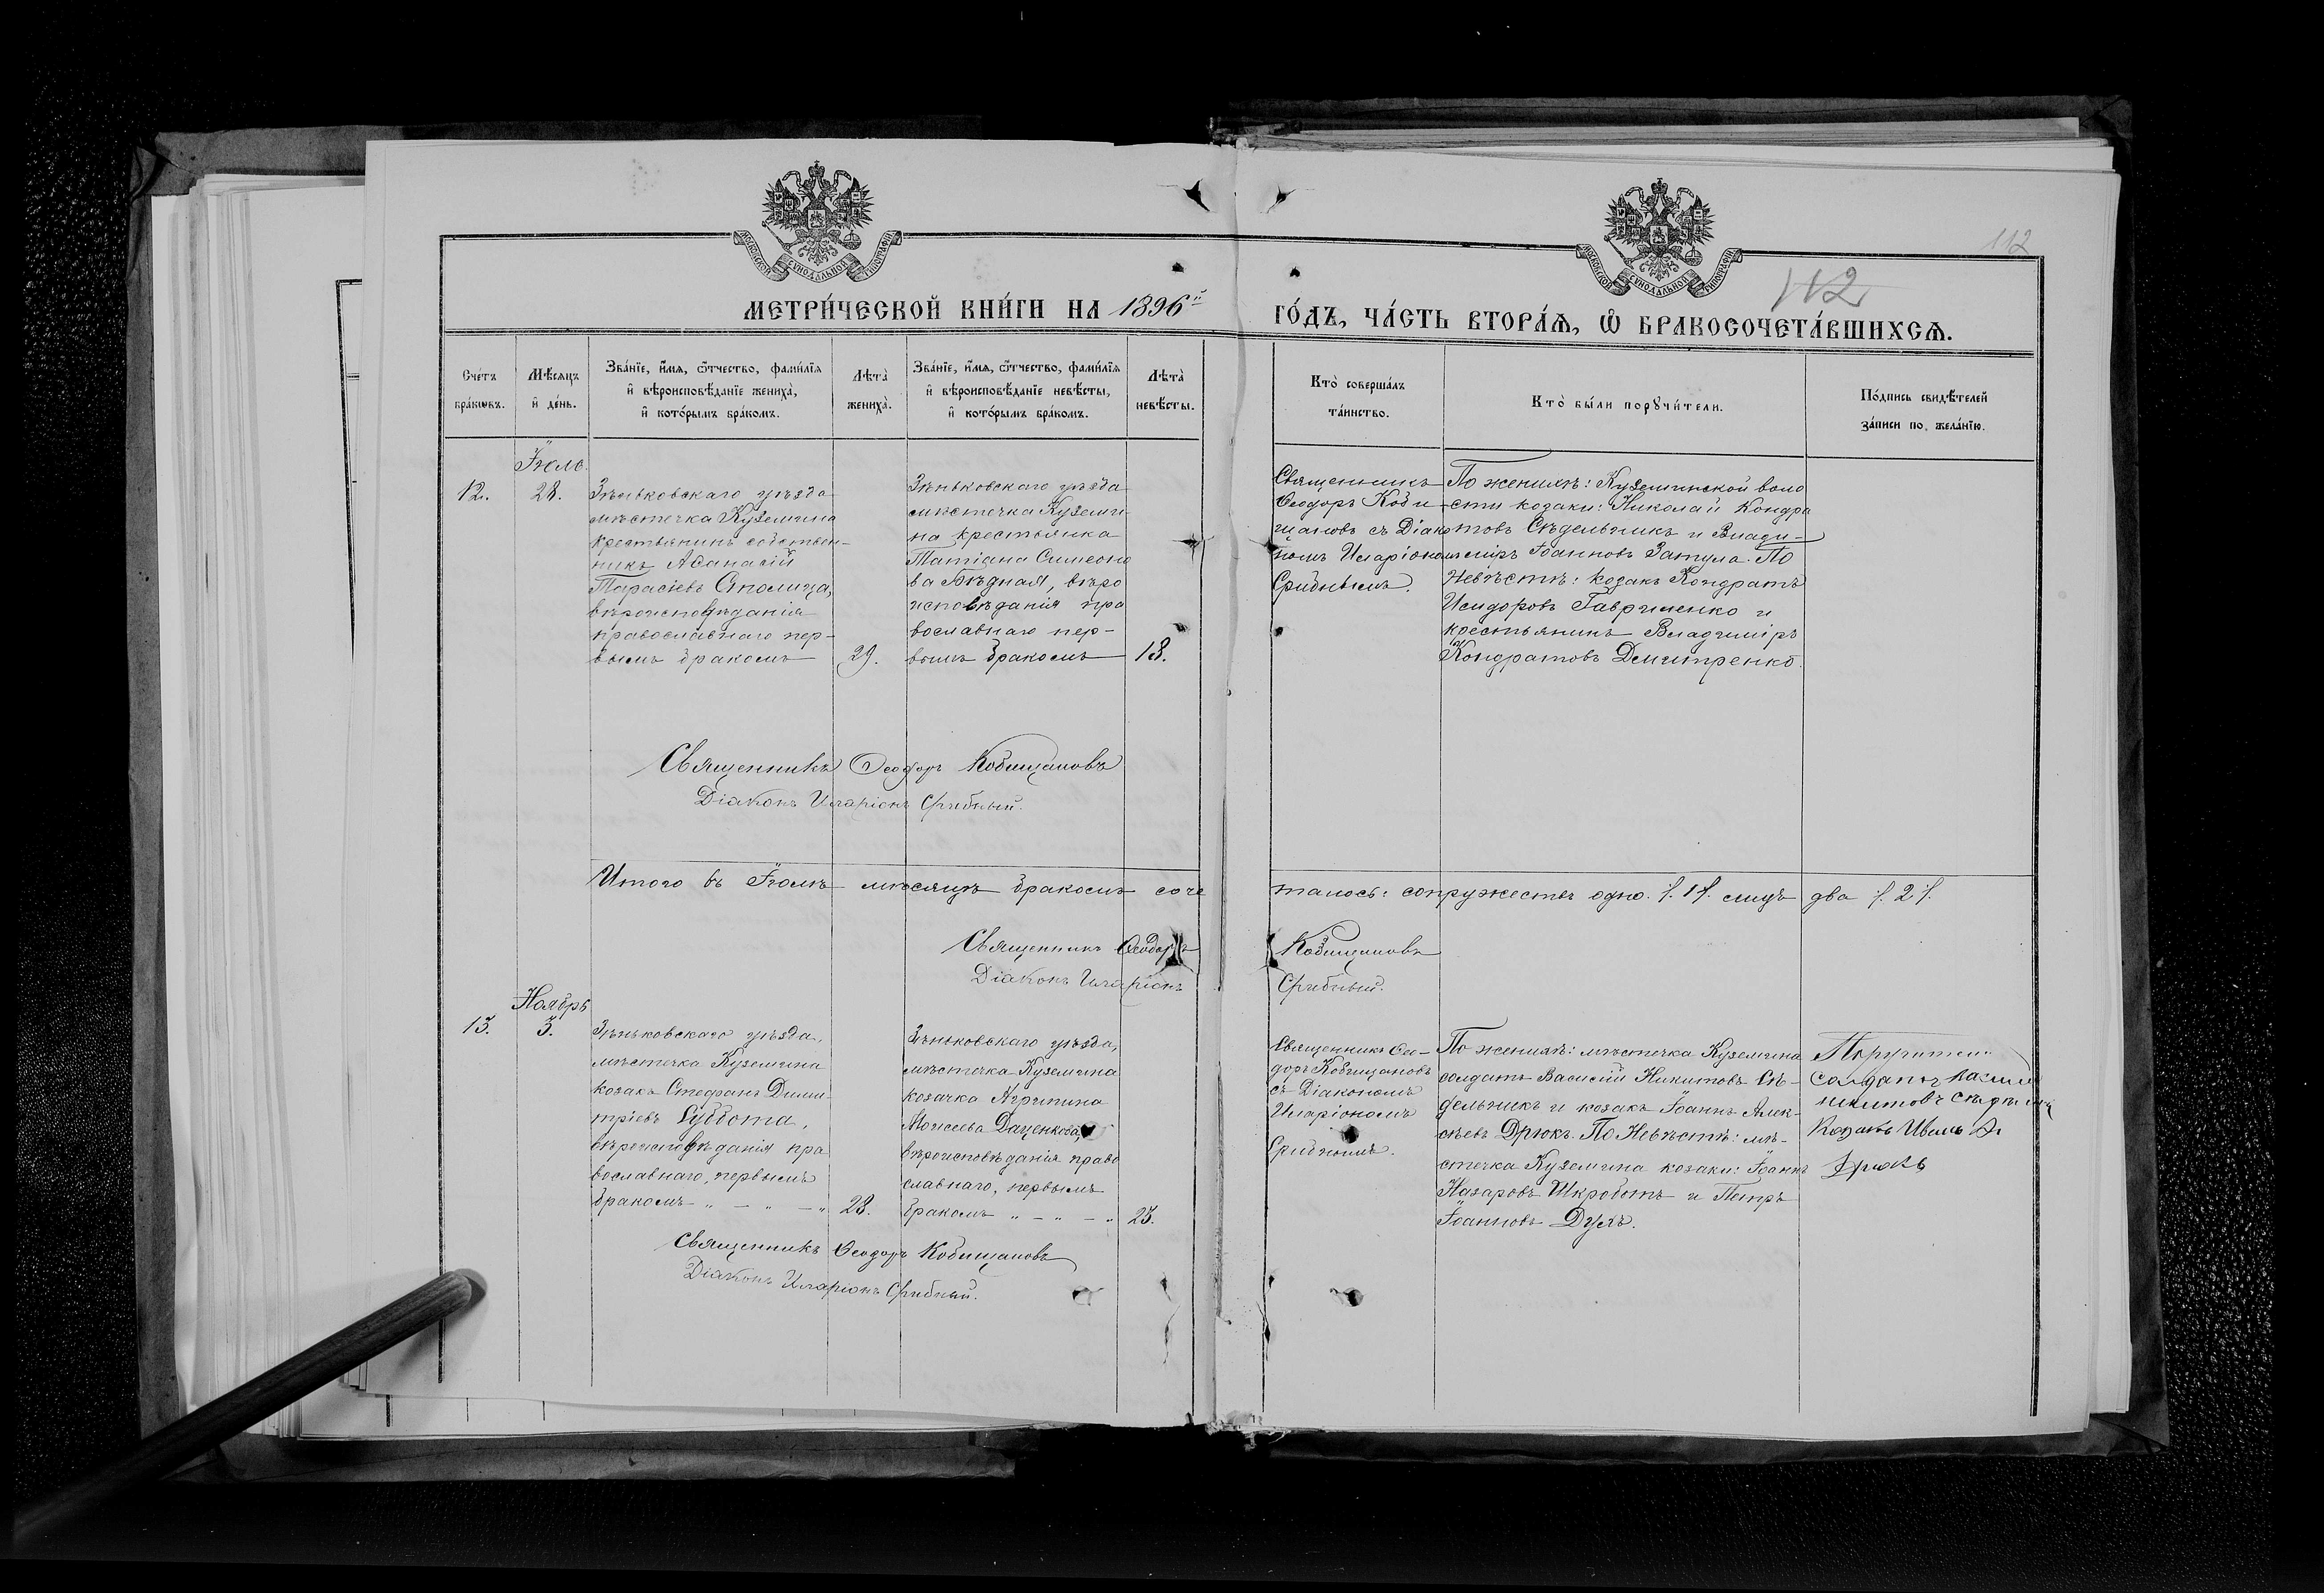 112
112
МОСКОВСКОЙ СѴНОДАЛЬНОЙ ТИПОГРАФІИ
МОСКОВСКОЙ СѴНОДАЛЬНОЙ ТИПОГРАФІИ
МЕТРИ́ЧЕСКОЙ КНИ́ГИ НА 1896й
ГО́ДЪ, ЧА́СТЬ ВТОРА́Ѧ, Ѽ БРАКОСОЧЕТА́ВШИХСѦ.
Сче́тъ
бра́кѡвъ.
Мѣ́сѧцъ
и҆ де́нь.
Зва́нїе, и҆́мѧ, ѻ҆́тчество, фами́лїѧ
и҆ вѣроисповѣ́данїе жениха̀,
и҆ кото́рымъ бра́комъ.
Лѣта̀
жениха̀.
Зва́нїе, и҆́мѧ, ѻ҆́тчество, фами́лїѧ
и҆ вѣроисповѣ́данїе невѣ́сты,
и҆ кото́рымъ бра́комъ.
Лѣта̀
невѣ́сты.
Кто̀ соверша́лъ
та́инство.
Кто̀ бы́ли порꙋчи́тели.
По́дпись свидѣ́телей
за́писи по жела́нїю.
Іюль.
12.
28.
Зѣньковскаго уѣзда
мѣстечка Куземина
крестьянинъ собствен-
никъ Аѳанасій
Тарасіевъ Столица,
вѣроисповѣданія
православнаго пер-
вымъ бракомъ
29.
Зѣньковскаго уѣзда
мѣстечка Куземи-
на крестьянка
Татіана Симеоно
ва Бѣдная, вѣро
исповѣданія пра
вославнаго пер-
вымъ бракомъ
18.
Священникъ
Ѳеодоръ Коби-
щановъ съ Діако
номъ Иларіономъ
Срибнымъ.
По женихѣ: Куземинской воло
сти козаки: Николай Кондра
товъ Сѣдельникъ и Влади-
міръ Іоанновъ Затула. По
невѣстѣ: козакъ Кондратъ
Исидоровъ Гавриленко и
крестьянинъ Владиміръ
Кондратовъ Дмитренко.
Священникъ Ѳеодоръ Кобищановъ
Діаконъ Иларіонъ Срибный.
Итого въ Іюлѣ мѣсяцѣ бракомъ соче
талось: сопружествъ одно ./. 1 ./. лицъ два ./. 2 ./.
Священникъ Ѳеодоръ Кобищановъ
Діаконъ Иларіонъ Срибный.
Ноябрь
13.
3.
Зѣньковскаго уѣзда,
мѣстечка Куземина
козакъ Стефанъ Дими-
тріевъ Суббота,
вѣроисповѣданія пра
вославнаго, первымъ
бракомъ " — " — "
28.
Зѣньковскаго уѣзда,
мѣстечка Куземина
козачка Агрипина
Моисеева Даценкова,
вѣроисповѣданія право
славнаго, первымъ
бракомъ " — " — "
23.
Священникъ Ѳео-
доръ Кобищановъ
съ Діакономъ
Иларіономъ
Срибнымъ.
По женихѣ: мѣстечка Куземина
солдатъ Василій Никитовъ Сѣ-
дельникъ и козакъ Іоаннъ Алек-
сѣевъ Дрюкъ. По невѣстѣ: мѣ-
стечка Куземина козаки: Іоаннъ
Назаровъ Шкроботъ и Петръ
Іоанновъ Духъ.
Поручители
Солдатъ
никитовъ
Козакъ Иванъ
Дрюкъ
Священникъ Ѳеодоръ Кобищановъ
Діаконъ Иларіонъ Срибный.